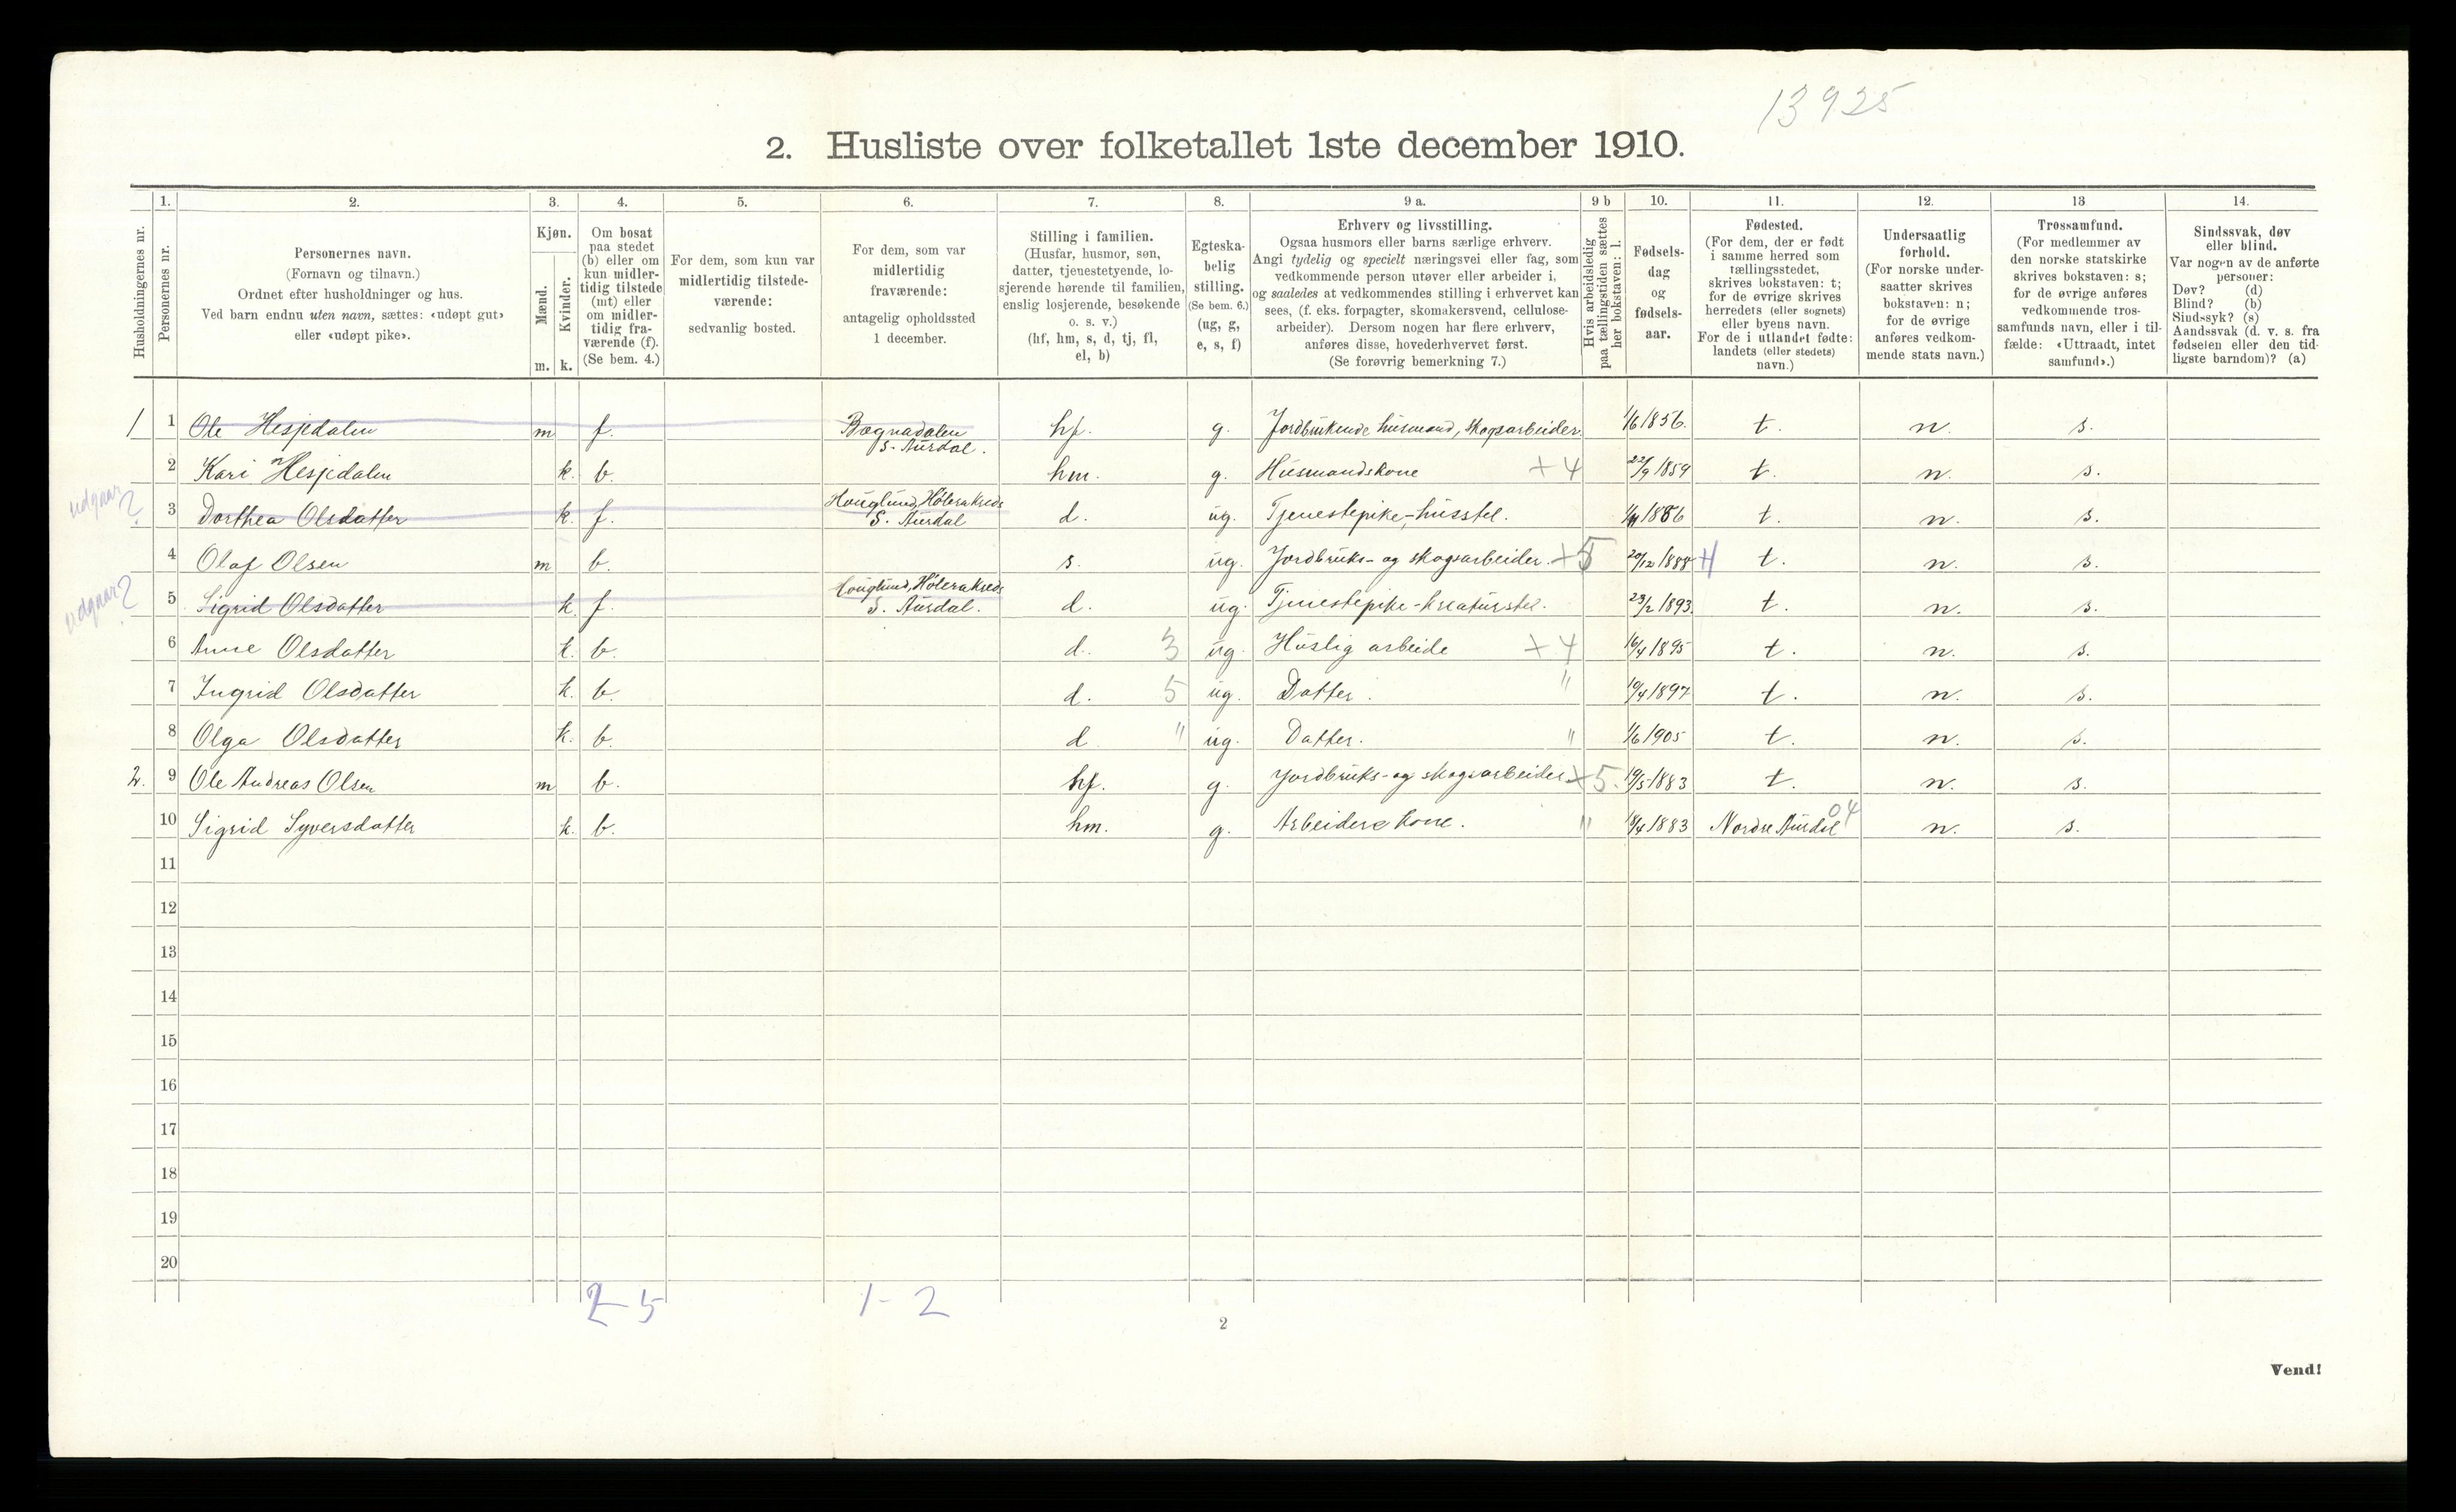 13925
2. Husliste over folketallet 1ste december 1910.
1. 2. 3. 4. 5. 6. 7. 8. 9 a. 9 b 10. 11. 12. 13 14.
Husholdningernes nr.
Personernes nr.
Personernes navn.
(Fornavn og tilnavn.)
Ordnet efter husholdninger og hus.
Ved barn endnu uten navn, sættes: «udøpt gut»
eller «udøpt pike».
Kjøn.
Mænd.
Kvinder.
m. k.
Om bosat
paa stedet
(b) eller om
kun midler-
tidig tilstede
(mt) eller
om midler-
tidig fra-
værende (f).
(Se bem. 4.)
For dem, som kun var
midlertidig tilstede-
værende:
sedvanlig bosted.
For dem, som var
midlertidig
fraværende:
antagelig opholdssted
1 december.
Stilling i familien.
(Husfar, husmor, søn,
datter, tjenestetyende, lo-
sjerende hørende til familien,
enslig losjerende, besøkende
o. s. v.)
(hf, hm, s, d, tj, fl,
el, b)
Egteska-
belig
stilling.
(Se bem. 6.)
(ug, g,
e, s, f)
Erhverv og livsstilling.
Ogsaa husmors eller barns særlige erhverv.
Angi tydelig og specielt næringsvei eller fag, som
vedkommende person utøver eller arbeider i,
og saaledes at vedkommendes stilling i erhvervet kan
sees, (f. eks. forpagter, skomakersvend, cellulose-
arbeider). Dersom nogen har flere erhverv,
anføres disse, hovederhvervet først.
(Se forøvrig bemerkning 7.)
Hvis arbeidsledig
paa tællingstiden sættes
her bokstaven: l.
Fødsels-
dag
og
fødsels-
aar.
Fødested.
(For dem, der er født
i samme herred som
tællingsstedet,
skrives bokstaven: t;
for de øvrige skrives
herredets (eller sognets)
eller byens navn.
For de i utlandet fødte:
landets (eller stedets)
navn.)
Undersaatlig
forhold.
(For norske under-
saatter skrives
bokstaven: n;
for de øvrige
anføres vedkom-
mende stats navn.)
Trossamfund.
(For medlemmer av
den norske statskirke
skrives bokstaven: s;
for de øvrige anføres
vedkommende tros-
samfunds navn, eller i til-
fælde: «Uttraadt, intet
samfund».)
Sindssvak, døv
eller blind.
Var nogen av de anførte
personer:
Døv? (d)
Blind? (b)
Sindssyk? (s)
Aandssvak (d. v. s. fra
fødselen eller den tid-
ligste barndom)? (a)
1 1 Ole Hesjedalen m f. Bagnadalen S. Aurdal. hf. g. Jordbrukende husmand, skogsarbeider. 1/6 1856. t. n. s.
2 Kari Hesjedalen k. b. hm. g. Husmandskone +4 22/9 1859 t. n. s.
udgaar? 3 Dorthea Olsdatter k. f. S. Aurdal d. ug. Tjenestepike, husstel. t. n. s.
4 Olaf Olsen m b. s. ug. Jordbruks- og skogsarbeider. +5 20/12 1888 t. n. s.
udgaar? 5 Sigrid Olsdatter k. f. S. Aurdal. d. ug. Tjenestepike - kreaturstel. 23/2 1893. t. n. s.
6 Anne Olsdatter k. b. d. 3 ug. Huslig arbeide +4 16/4 1895 t. n. s.
7 Ingrid Olsdatter k. b. d. 5 ug. Datter. " 19/4 1897 t. n. s.
8 Olga Olsdatter k. b. d " ug. Datter. " 1/6 1905 t. n. s.
2. 9 Ole Andreas Olsen m b. hf. g. Jordbruks- og skogsarbeider +5. 19/5 1883 t. n. s.
10 Sigrid Syversdatter k. b. hm. g. Arbeiders kone. " 18/4 1883 Nordre Aurdal 04 n. s.
11
12
13
14
15
16
17
18
19
20
2-5 1-2
2
Vend!